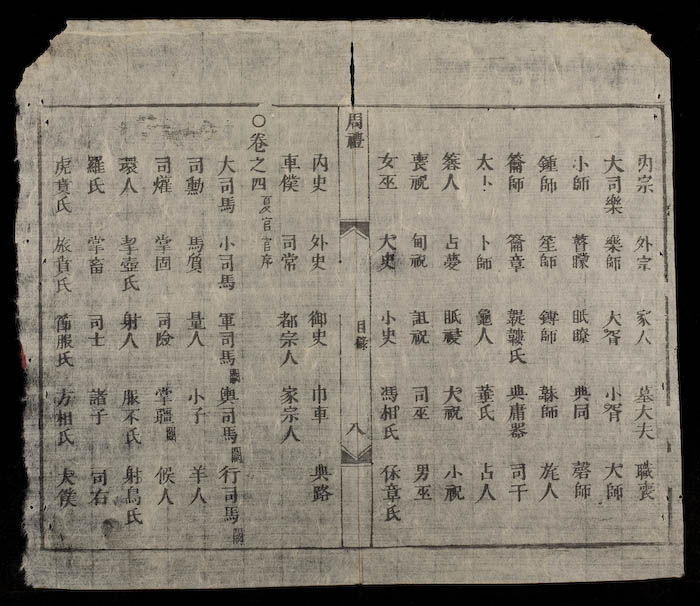 內宗 外宗 家人 墓大夫 職喪
大司樂 樂師 大胥 小胥 大師
小師 瞽矇 眂瞭 典同 磬師
鍾師 笙師 鎛師 韎師 旄人
籥師 籥章 鞮鞻氏 典庸器 司干
太卜 卜師 龜人 菙氏 占人
簭人 占夢 眂祲 大祝 小祝
喪祝 甸祝 詛祝 司巫 男巫
女巫 大史 小史 馮相氏 保章氏
周禮 目錄 八
內史 外史 御史 巾車 典路
車僕 司常 都宗人 家宗人
○卷之四 夏官官序
大司馬 小司馬 軍司馬闕 輿司馬闕 行司馬闕
司勳 馬質 量人 小子 羊人
司爟 掌固 司險 掌疆闕 候人
環人 挈壺氏 射人 服不氏 射鳥氏
羅氏 掌畜 司士 諸子 司右
虎賁氏 旅賁氏 節服氏 方相氏 大僕